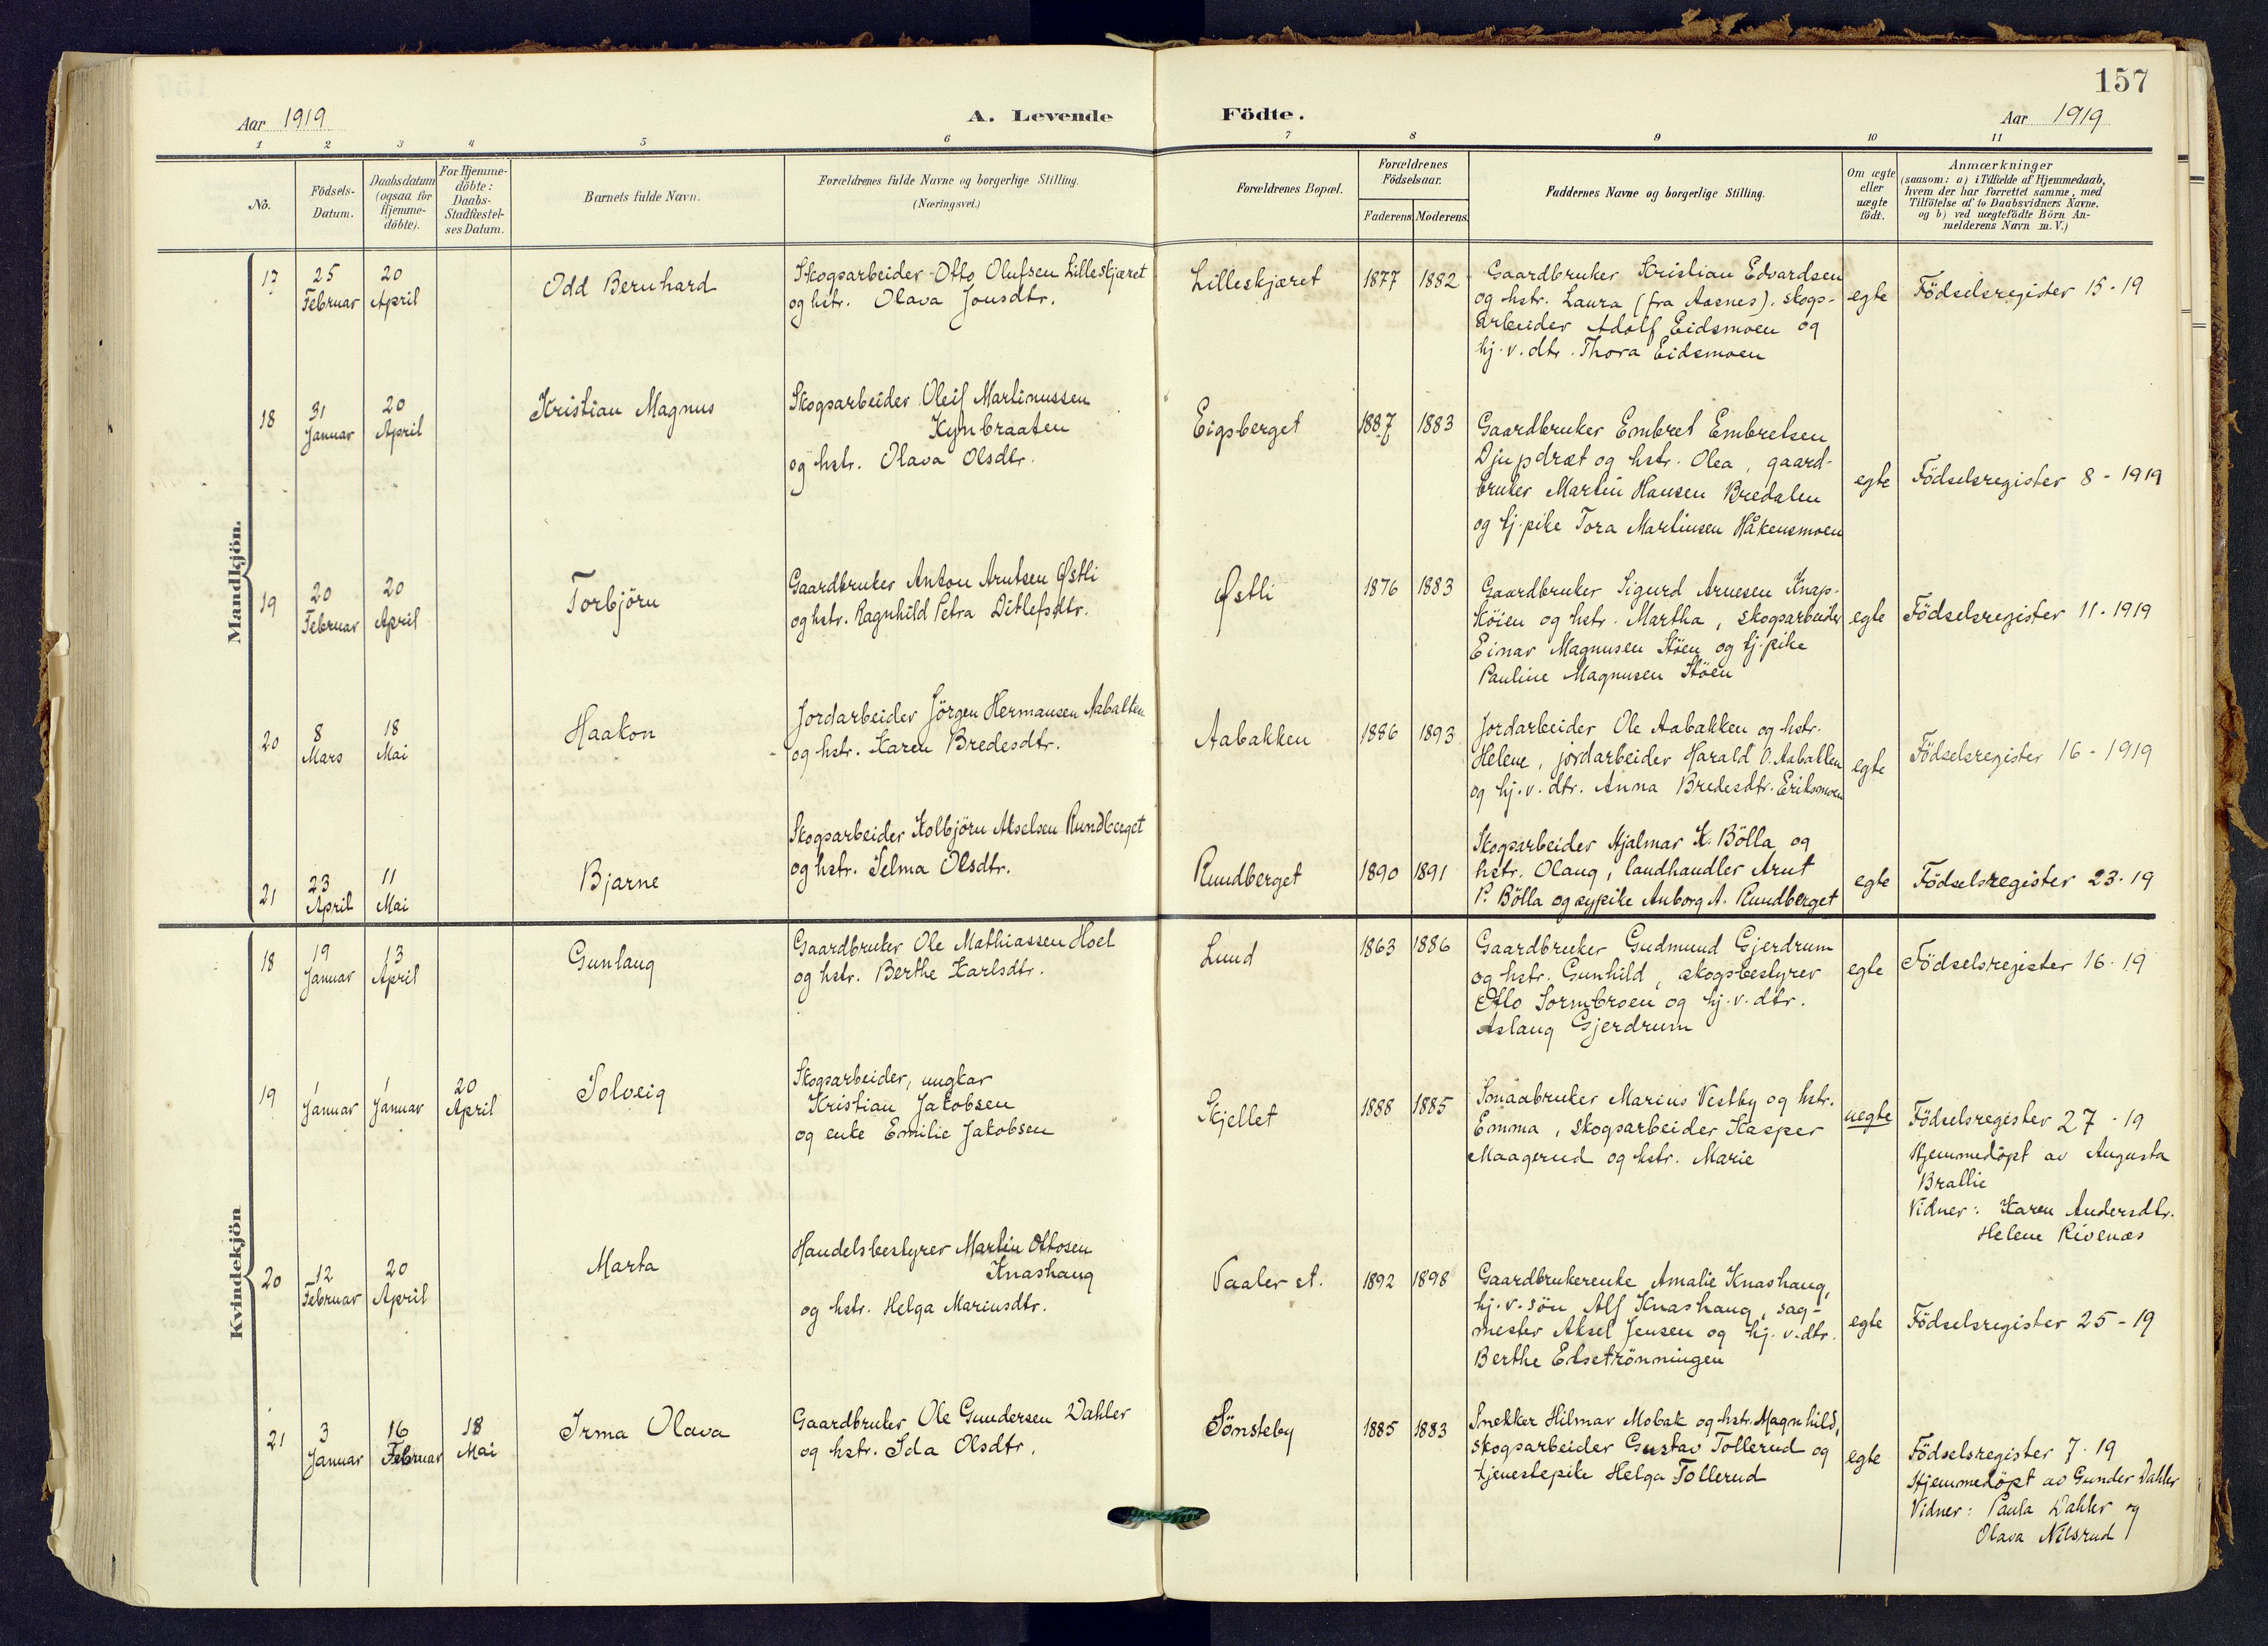 157
Aar 1919
A. Levende
Födte.
Aar 1919
1 2 3 4 5 6 7 8 9 10 11
No.
Födsels-
Datum.
Daabsdatum
(ogsaa for
Hjemme-
döbte).
For Hjemme-
döbte:
Daabs-
Stadfæstel-
ses Datum.
Barnets fulde Navn.
Forældrenes fulde Navne og borgerlige Stilling.
(Næringsvei.)
Forældrenes Bopæl.
Forældrenes
Födselsaar.
Faderens Moderens
Faddernes Navne og borgerlige Stilling.
Om ægte
eller
uægte
födt.
Anmærkninger
(saasom: a) i Tilfælde af Hjemmedaab,
hvem der har forrettet samme, med
Tilföielse af to Daabsvidners Navne.
og b) ved uægtefödte Börn An-
melderens Navn m. V.)
Mandkjön.
17
25
Februar
20
April
Odd Bernhard
Skogsarbeider Otto Olufsen Lilleskjæret
og hstr. Olava Jonsdtr.
Lilleskjæret
1877 1882
Gaardbruker Kristian Edvardsen
og hstr. Laura (fra Aasnes), skogs-
arbeider Adolf Eidsmoen og
hj. v. dtr. Thora Eidsmoen
egte
Födselsregister 15-19
18
31
Januar
20
April
Kristian Magnus
Skogsarbeider Oleif Martinussen
Kynbraaten
og hstr. Olava Olsdtr.
Eigsberget
1887 1883
Gaardbruker Embret Embretsen
Djupdræt og hstr. Olea, gaard-
bruker Martin Hansen Bredalen
og tj. pike Tora Martinsen Håkensmoen
egte
Födselsregister 8 - 1919
19
20
Februar
20
April
Torbjörn
Gaardbruker Anton Arntsen Østli
og hstr. Ragnhild Petra Ditlefsdtr.
Østli
1876 1883
Gaardbruker Sigurd Arnesen Knap-
köien og hstr. Martha, skogsarbeider
Einar Magnusen Höen og tj. pike
Pauline Magnusen Höen
egte
Födselsregister 11-1919
20
8
Mars
18
Mai
Haakon
Jordarbeider Jörgen Hermansen Aabakken
og hstr. Karen Bredesdtr.
Aabakken
1886 1893
Jordarbeider Ole Aabakken og hstr.
Helene, jordarbeider Harald O. Aabakken
og hj. v. dtr. Anna Bredesdtr. Eriksmoen
egte
Födselsregister 16-1919
21
23
April
11
Mai
Bjarne
Skogsarbeider Kolbjörn Akselsen Rundberget
og hstr. Selma Olsdtr.
Rundberget
1890 1891
Skogsarbeider Hjalmar K. Bölla og
hstr. Olaug, landhandler Arnt
P. Bölla og sypike Anborg A. Rundberget
egte
Födselsregister 23-19
Kvindekjön
18
19
Januar
13
April
Gunlaug
Gaardbruker Ole Mathiassen Hoel
og hstr. Berthe Karlsdtr.
Lund
1863 1886
Gaardbruker Gudmund Gjerdrum
og hstr. Gunhild, skogsbestyrer
Otto Sormbroen og hj. v. dtr.
Aslaug Gjerdrum
egte
Födselsregister 16-19
19
1
Januar
1
Januar
20
April
Solveig
Skogsarbeider, ungkar
Kristian Jakobsen
og enke Emilie Jakobsen
Skjellet
1888 1885
Smaabruker Marius Vestby og hstr.
Emma, skogsarbeider Kasper
Maagerud og hstr. Marie
uegte
Födselsregister 27-19
Hjemmedöpt av Augusta
Brallie
Vidner: Karen Andersdtr.
Helene Rivenæs
20
12
Februar
20
April
Marta
Handelsbestyrer Martin Ottosen
Knashaug
og hstr. Helga Mariusdtr.
Vaaler st.
1892 1898
Gaardbrukerenke Amalie Knashaug,
hj. v. sön Alf Knashaug, sag-
mester Aksel Jensen og hj. v. dtr.
Berthe Elsetrönningen
egte
Födselsregister 25-19
21
3
Januar
16
Februar
18
Mai
Irma Olava
Gaardbruker Ole Gundersen Dahler
og hstr. Ida Olsdtr.
Sönsteby
1885 1883
Snekker Hilmar Mobak og hstr. Magnhild,
skogsarbeider Gustav Tollerud og
tjenestepike Helga Tollerud
egte
Födselsregister 7-19
Hjemmedöpt av Gunder Dahler
Vidner: Paula Dahler og
Olava Nilsrud